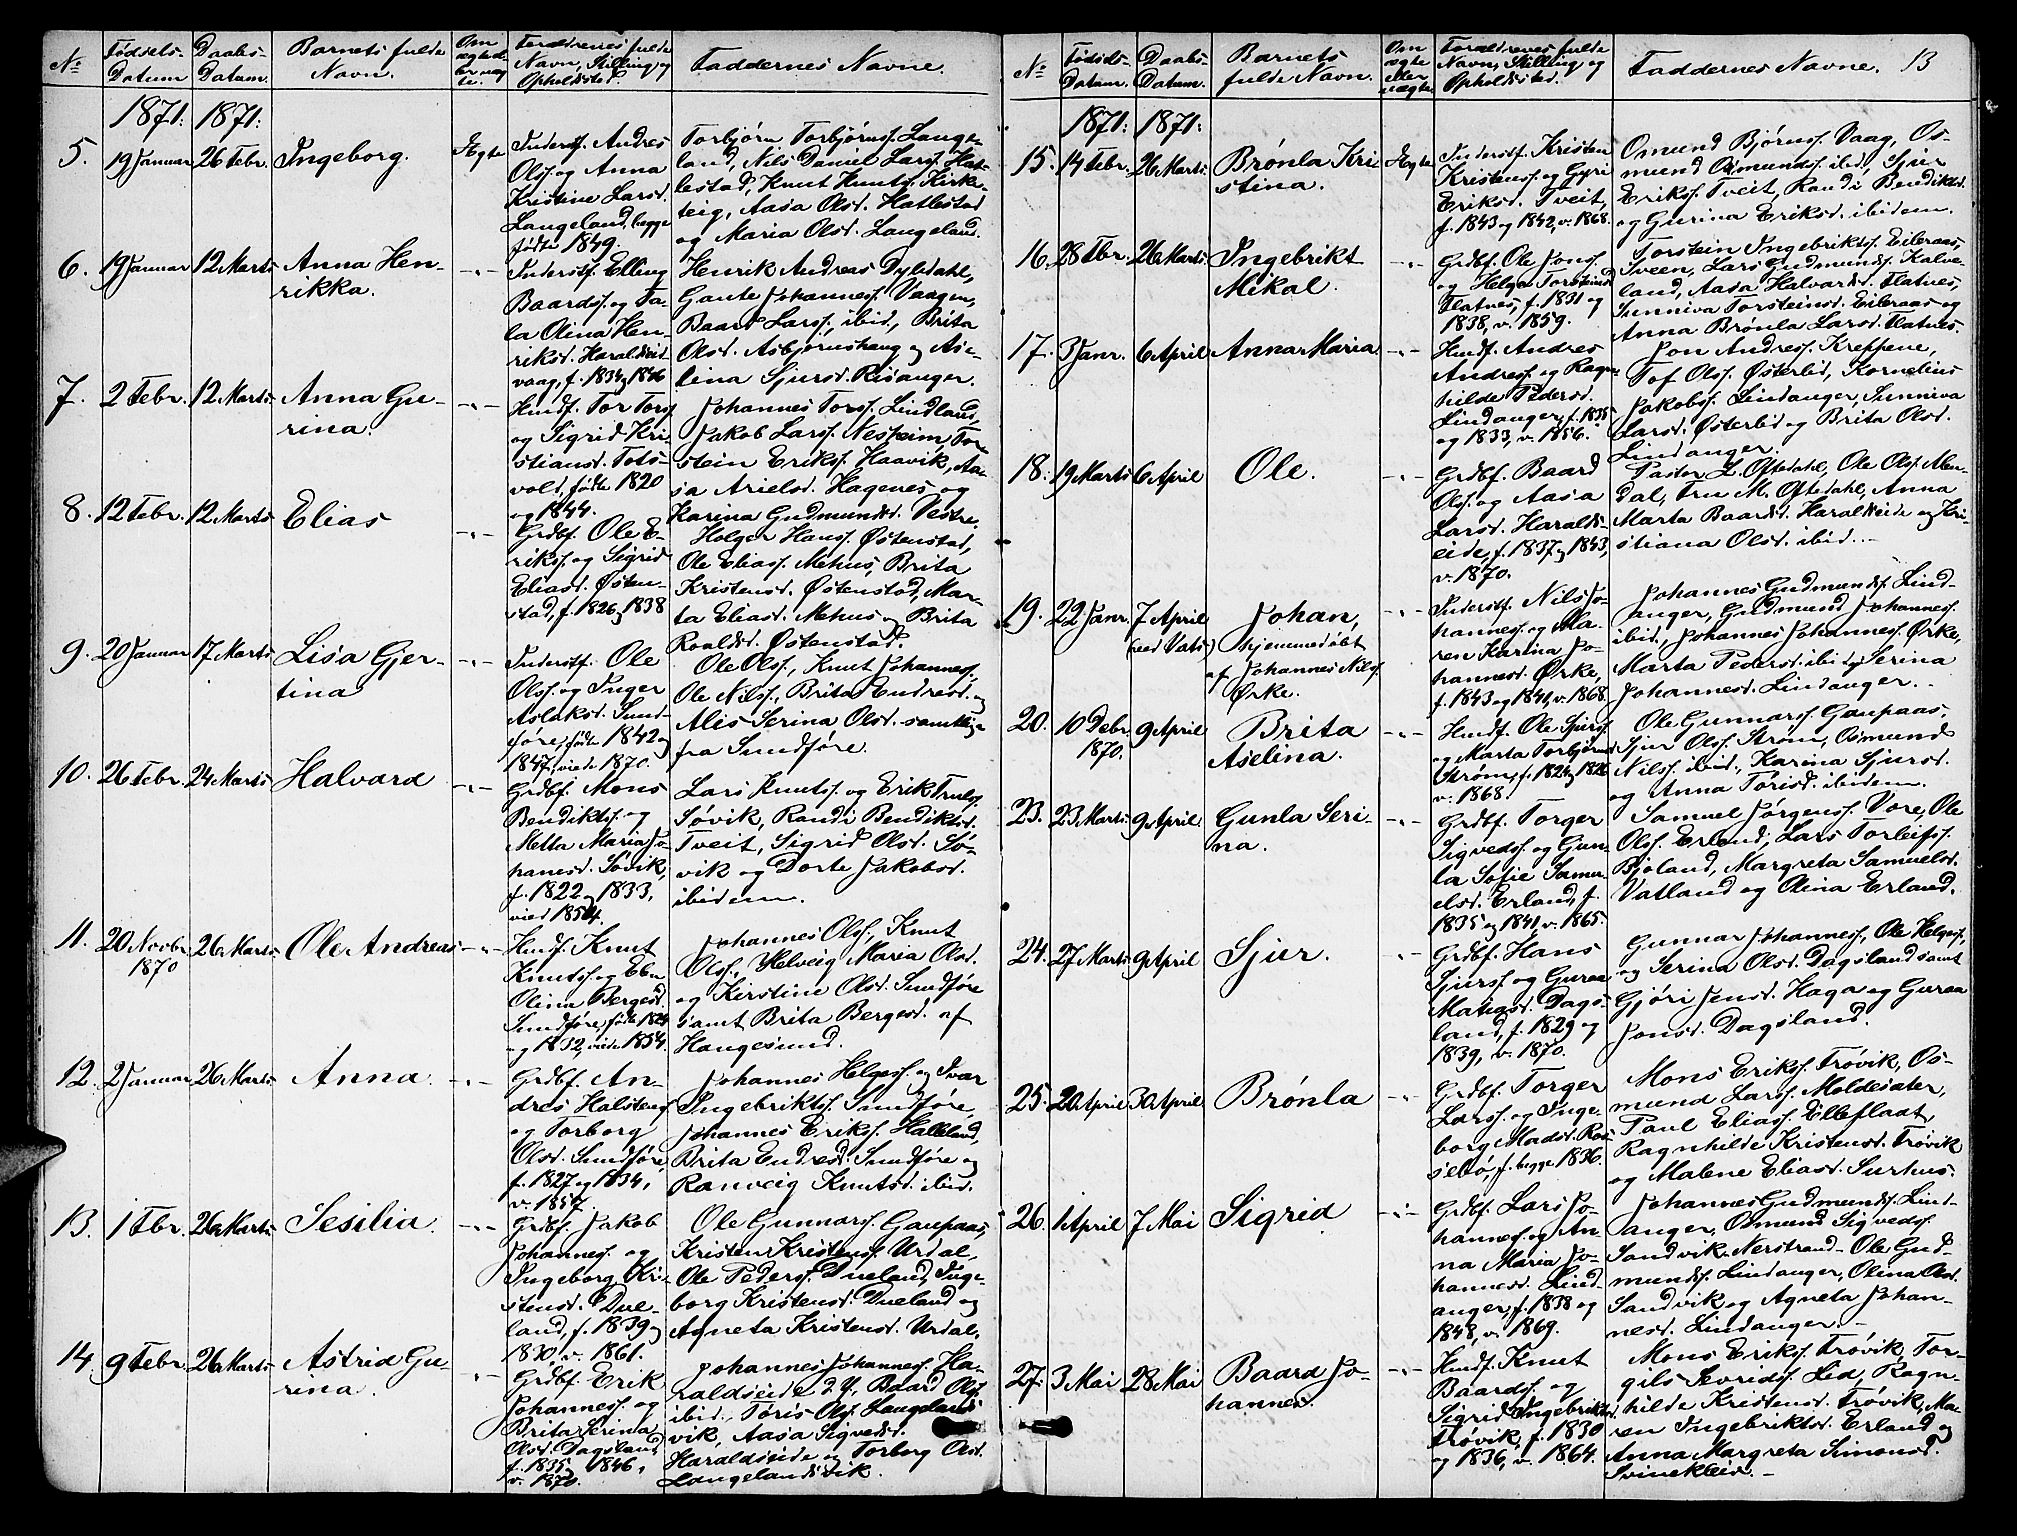 No
Fødsels-
Datum
Daabs-
Datum.
Barnets fulde
Navn.
Om
ægte
eller uæg-
te.
Forældrenes fulde
Navn, Stilling og
Opholdssted.
Faddernes Navne.
1871: 1871:
5. 19 Januar 26 Febr. Ingeborg. Ægte
Inderstf. Andres
Olss. og Anna
Kristine Larsd.
Langeland, begge
fødte 1849.
Torbjørn Torbjørnss. Lange-
land, Nils Daniel Larss. Hat-
lestad, Knut Knutss. Kirke-
teig, Aasa Olsd. Hatlestad
og Maria Olsd. Langeland.
6. 19 Januar 12 Marts Anna Hen-
rikka. -"-
Inderstf. Elling
Baardss. og Ta-
la Olina Hen-
riksd. Haraldseid-
vaag, f. 1834 og 1846
Henrik Andreas Dyledahl,
Gaute Johanness. Vaagen,
Baard Larss., ibid., Brita
Olsd. Asbjørnshaug og Ase-
lina Sjursd. Risanger.
7. 2 Febr. 12 Marts Anna Gu-
rina. -"-
Husmf. Tor Torss.
og Sigrid Kri-
stiansd. Tots-
vold, fødte 1820
og 1844.
Johannes Torss. Lindland,
Jakob Larss. Nesheim, Tor-
stein Erikss. Haavik, Aa-
sa Arielsd. Hagenes og
Karina Gudmundsd. Vestre.
8. 12 Febr. 12 Marts Elias -"-
Grdbf. Ole E-
rikss. og Sigrid
Eliasd. Østen-
stad, f. 1826 og 1838
Holger Hanss. Østenstad,
Ole Eliass. Mehus, Brita
Kristensd. Østenstad, Mar-
ta Eliasd. Mehus og Brita
Roaldsd. Østenstad.
9. 20 Januar 17 Marts Lisa Gjer-
tina -"-
Inderstf. Ole
Olss. og Inger
Aslaksd. Sund-
føre, fødte 1842 og
1847, viede 1870.
Ole Olss., Knut Johanness.,
Ole Nilss., Brita Endresd. og
Alis Serina Olsd. samtlige
fra Sundføre.
10. 26 Febr. 24 Marts Halvard -"-
Grdbf. Mons
Bendiktss. og
Metta Maria Jo-
hanesd. Søvik,
f. 1822 og 1833,
vied 1854.
Lars Knutss. og Erik Trulss.
Søvik, Randi Bendiktsd.
Tveit, Sigrid Olsd. Sø-
vik og Dorte Jakobsd.
ibidem.
11. 20 Novbr. 26 Marts Ole Andreas -"-
1870
Husmf. Knut
Knutss. og Elen
Olina Bergesd.
Sundføre, fødte 1824
og 1832, viede 1854.
Johannes Olss., Knut
Olss., Helveig Maria Olsd.
og Kirstine Olsd. Sundføre
samt Brita Bergesd. af
Haugesund.
12. 2 Januar 26 Marts Anna. -"-
Grdbf. An-
dres Halstenss.
og Torborg
Olsd. Sundføre,
f. 1827 og 1834,
v. 1857.
Johannes Helgess. og Ivar
Ingebriktss. Sundføre,
Johannes Erikss. Halleland,
Brita Endresd. Sundføre og
Ranveig Knutsd. ibid.
13. 1 Fbr. 26 Marts Sesilia. -"-
Grdbf. Jakob
Johanness. og
Ingeborg Kri-
stensd. Due-
land, f. 1839 og
1830 v. 1861.
Ole Gunnarss. Gaupaas,
Kristen Kristenss. Urdal,
Ole Pederss. Dueland, Inge-
borg Kristensd. Dueland og
Agneta Kristensd. Urdal.
14. 9 Febr. 26 Marts Astrid Gu-
rina. -"-
Grdbf. Erik
Johanness. og
Brita Serina
Olsd. Dagsland,
f. 1835 1846,
v. 1870.
Johannes Johanness. Ha-
raldseide d. y., Baard Olss.
ibid., Tøris Olss. Langelands-
vik, Aasa Sigvedsd.
Haraldseide og Torborg Olsd.
Langelandsvik.
No
Fødsels-
Datum.
Daabs-
Datum.
Barnets
fulde Navn.
Om
ægte
eller
uægte
Forældrenes fulde
Navn, Stilling og
Opholdssted.
Faddernes Navne. 13
1871: 1871:
15. 14 Febr. 26 Marts Brønla Kri-
stina. Ægte
Inderstf. Kristen
Kristenss. og Gyri
Eriksd. Tveit,
f. 1843 og 1842, v. 1868.
Omund Bjørnss. Vaag, Os-
mund Osmundss. ibid, Sjur
Erikss. Tveit, Randi Bendiktsd.
og Gurina Eriksd. ibidem.
16. 28 Fbr. 26 Marts Ingebrikt
Mikal. -"-
Grdbf. Ole Jonss.
og Helga Torsteinsd.
Flatnes, f. 1831 og
1838, v. 1859.
Torstein Ingebriktss. Eileraas,
Sveen, Lars Gudmundss. Kalve-
land, Aasa Halvardsd. Flatnes,
Sunniva Torsteinsd. Eileraas og
Anna Brønla Larsd. Flatnes.
17. 3 Janr. 6 April Anna Maria. -"-
Husmf. Andres
Andress. og Ragn-
hilde Pedersd.
Lindanger, f. 1835
og 1833, v. 1856.
Jon Andress. Kreppene,
Tof Olss. Østerlid, Kornelius
Jakobss. Lindanger, Sunniva
Larsd. Østerlid og Brita Olsd.
Lindanger.
18. 19 Marts 6 April Ole. -"-
Grdbf. Baard
Olss. og Aasa
Larsd. Haralds-
eide, f. 1837 og 1843,
v. 1870.
Pastor L. Oftedahl, Ole Olss. Men-
dal, Fru M. Oftedahl, Anna
Marta Baardsd. Haraldseide og Kri-
stiana Olsd. ibid.
19. 22 Janr. 7 April Johan,
(ved Vats) hjemmedøbt
af Johannes Nilss.
Ørke. -"-
Inderstf. Nils Jo-
hanness. og Ma-
ren Karina Jo-
hannesd. Ørke,
f. 1843 og 1841, v. 1868.
Johannes Gudmundss. Lind-
anger, Gudmund Johanness.
ibid., Johannes Johanness. Ørke,
Marta Pedersd. ibid og Serina
Johannesd. Lindanger.
20. 10 Debr. 9 April Brita
1870. Aselina. -"-
Husmf. Ole Sjurss.
og Marta Torbjørnsd.
Strøm, f. 1824 og 1826
v. 1868
Ole Gunnarss. Gaupaas,
Sjur Olss. Strøm, Osmund
Nilss. ibid., Karina Sjursd.
og Anna Tørisd. ibidem.
23. 23 Marts 9 April Gunla Seri-
na. -"-
Grdbf. Torger
Sigvedss. og Gun-
la Sofie Samu-
elsd. Erland, f.
1835 og 1841, v. 1865.
Samuel Jørgenss. Vore, Ole
Olss. Erland, Lars Torleifss.
Bjoland, Margreta Samuelsd.
Vatland og Olina Erland.
24. 27 Marts 9 April Sjur. -"-
Grdbf. Hans
Sjurss. og Guraa
Matiasd. Dags-
land, f. 1829 og
1839, v. 1870.
Gunnar Johanness., Ole Helgess.,
og Serina Olsd. Dagsland samt
Gjøri Jensd. Haga og Guraa
Jonsd. Dagsland.
25. 20 April 30 April Brønla -"-
Grdbf. Torger
Larss. og Inge-
borg Madsd. Ros-
sebø, f. begge 1836.
Mons Erikss. Trøvik, Os-
mund Larss. Moldesæter,
Paul Eliass. Ellefladt,
Ragnhilde Kristensd. Trøvik
og Malene Eliasd. Surhus.
26. 1 April 7 Mai Sigrid -"-
Grdbf. Lars Jo-
hanness. og An-
na Maria Jo-
hannesd. Lind-
anger, f. 1838 og
1848, v. 1869.
Johannes Gudmundss. Lind-
anger, Osmund Sigvedss.
Sandvik Nerstrand- Ole Gud-
mundss. Lindanger, Olina Olsd.
Sandvik og Agneta Johan-
nesd. Lindanger.
27. 3 Mai 28 Mai Baard Jo-
hannes. -"-
Husmf. Knut
Baardss. og
Sigrid Ingebriktsd.
Trøvik, f. 1830
og 1836, v. 1864.
Mons Erikss. Trøvik, Tor-
gils Sivridss. Lid, Ragn-
hilde Kristensd. Trøvik, Ma-
ren Ingebriktsd. Erland og
Anna Margreta Simonsd.
Svinekleiv.